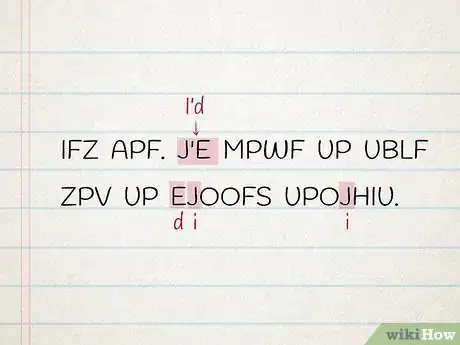 I'd
↓
IFZ APF. J'E MPWF UP UBLF
ZPV UP EJOOFS UPOJHIU.
d i i
wikiHow